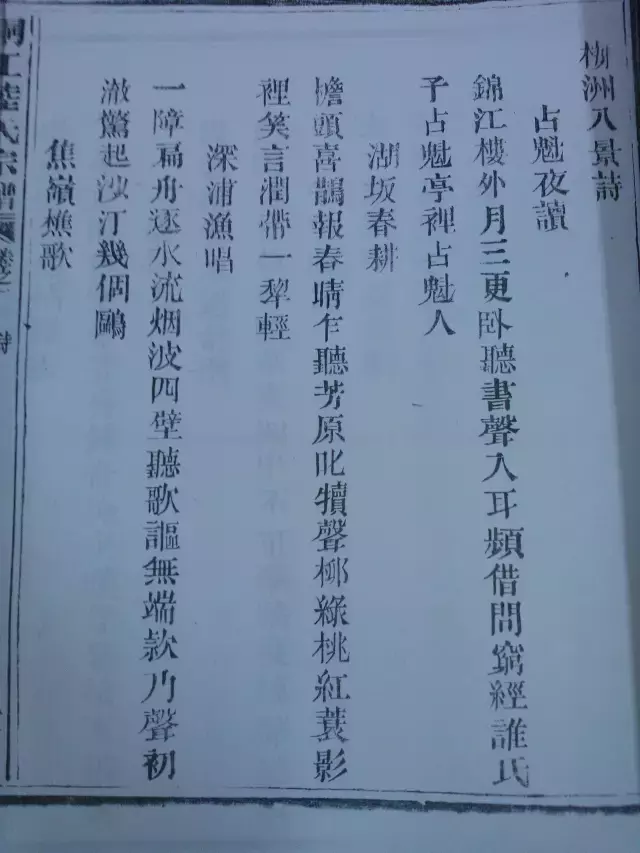 梅洲八景詩
占魁夜讀
錦江樓外月三更卧聽書聲入耳頻借問窮經誰氏
子占魁亭裡占魁人
湖坂春耕
檐頭喜鵲報春晴乍聽芳原叱犢聲柳綠桃紅蓑影
裡笑言潤帶一犂輕
深浦漁唱
一障扁舟逐水流烟波四壁聽歌謳無端款乃聲初
澈驚起沙汀幾個鷗
焦嶺樵歌
江陸氏宗譜 卷之 詩